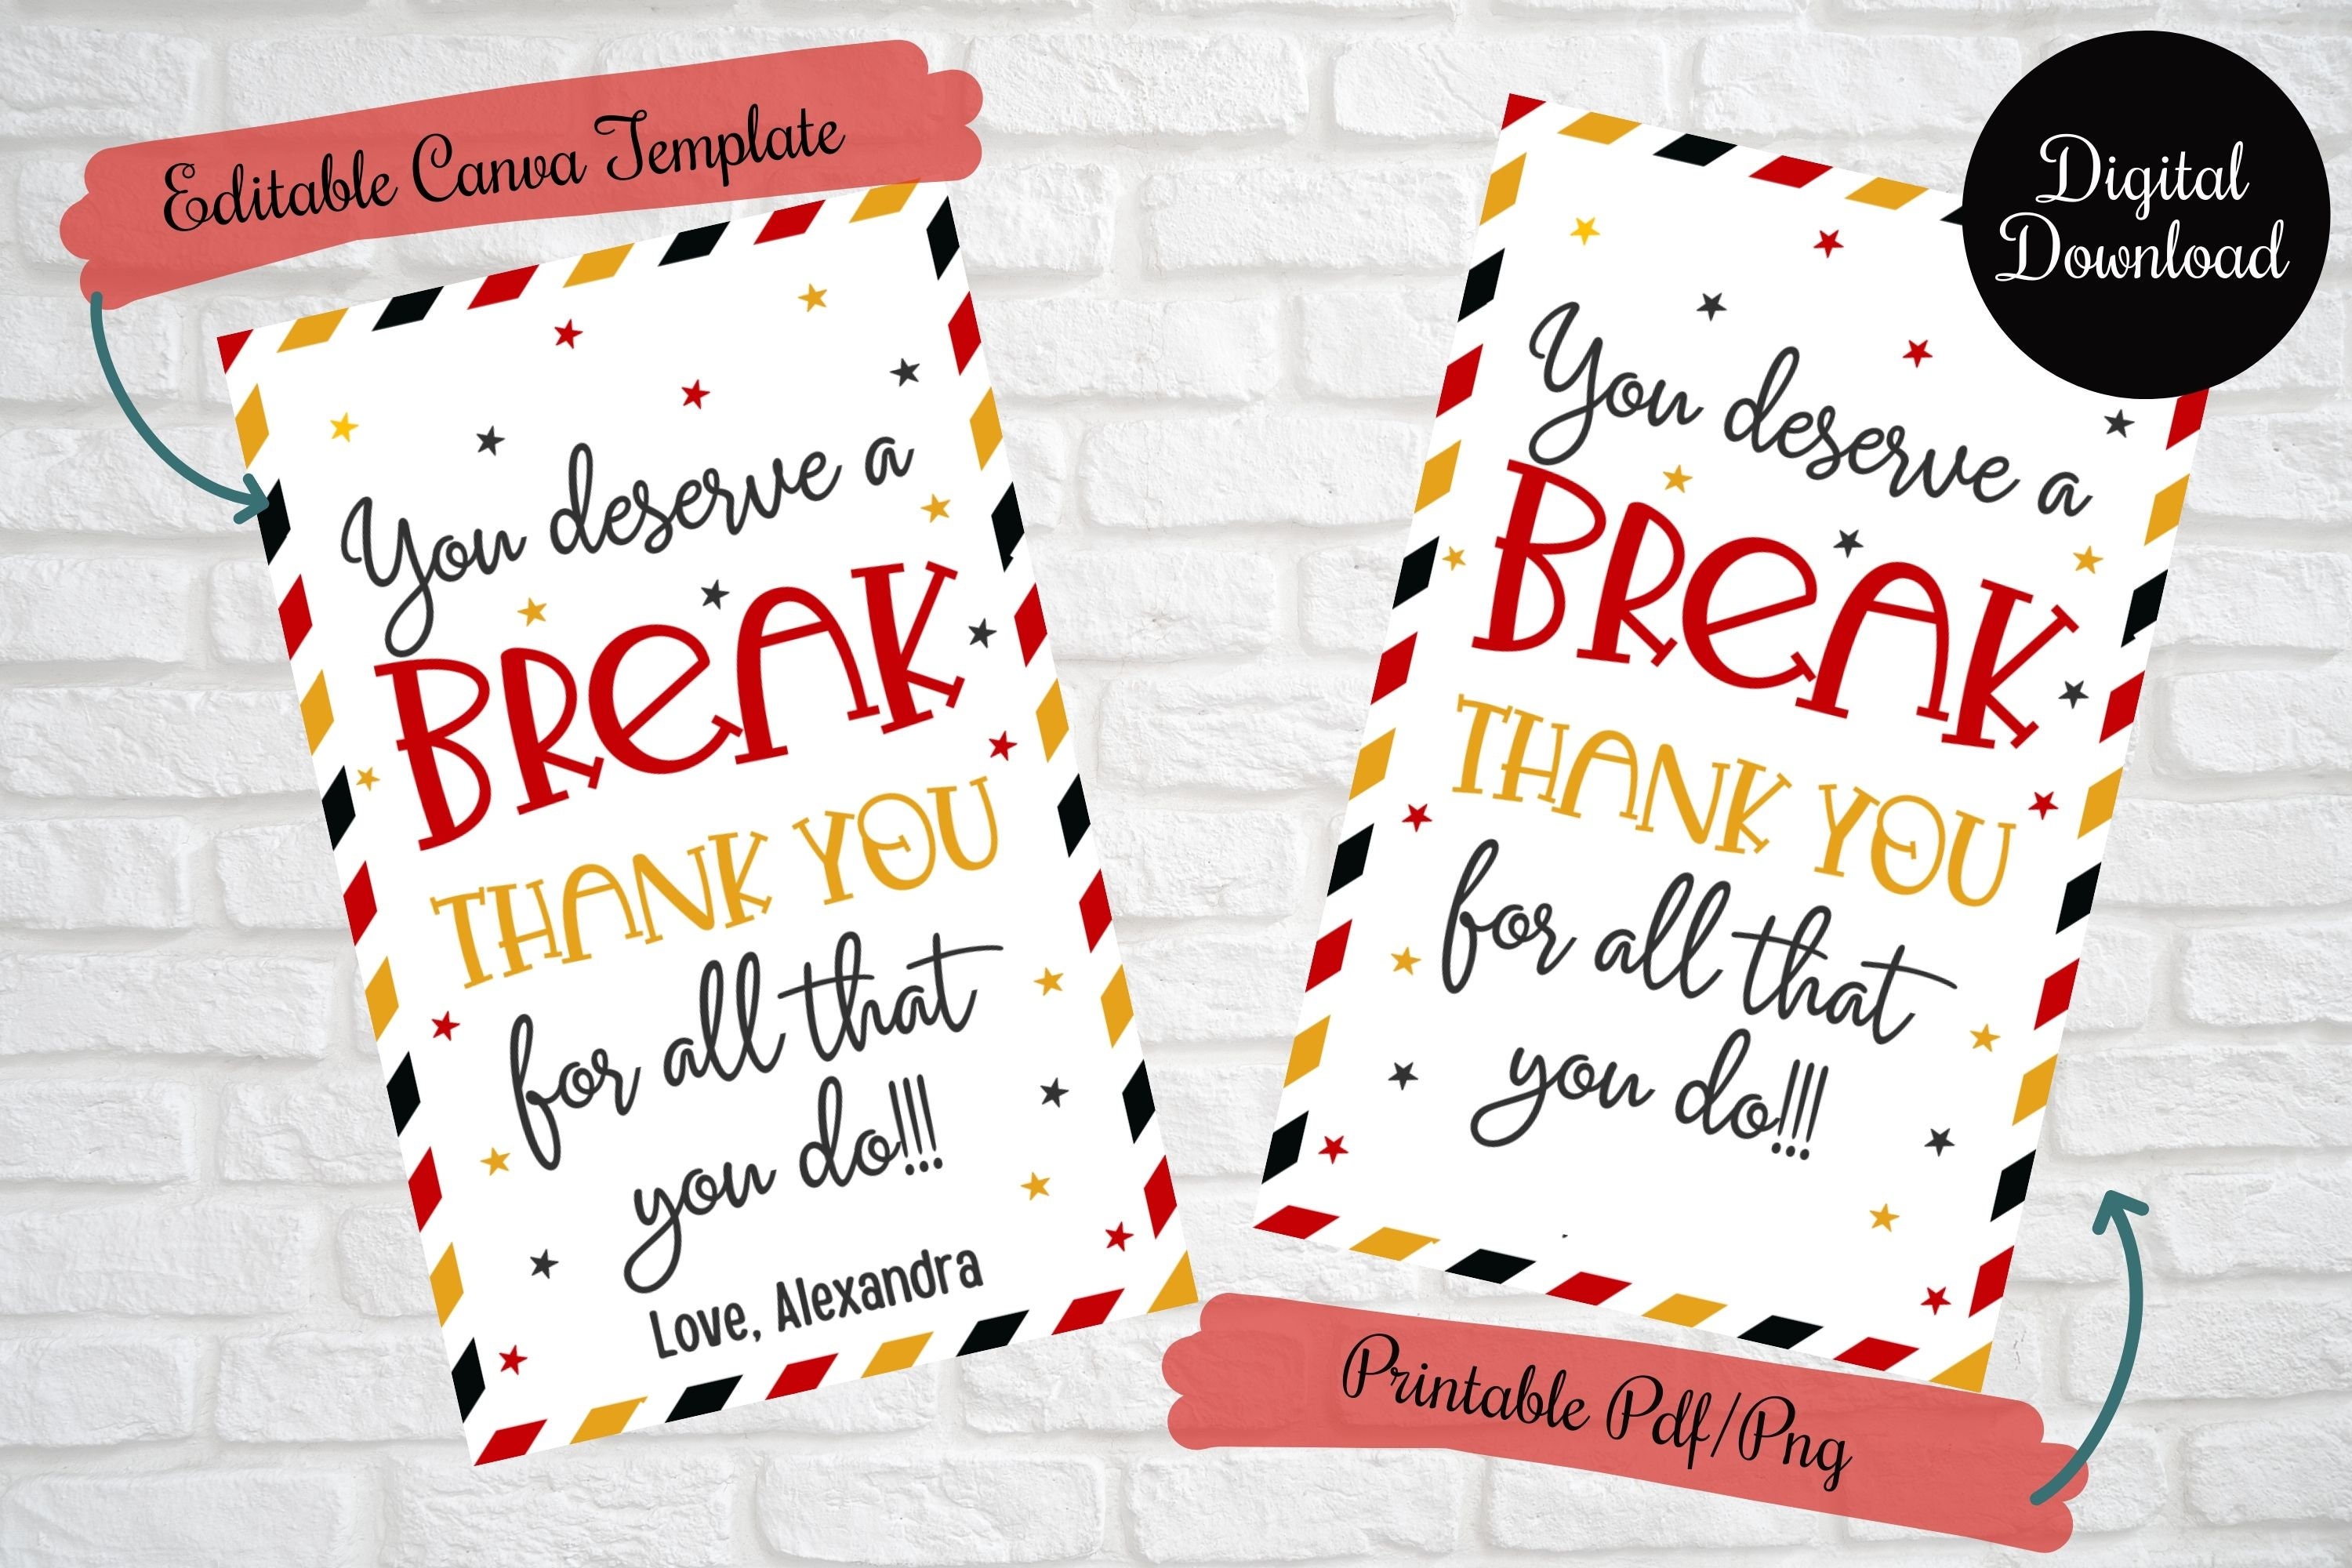 Editable Canva Template
You deserve a
BReAK
THANK YOU
for all that
you do!!!
Love, Alexandra
Digital
Download
You deserve a
BReAK
THANK YOU
for all that
you do!!!
Printable Pdf/Png